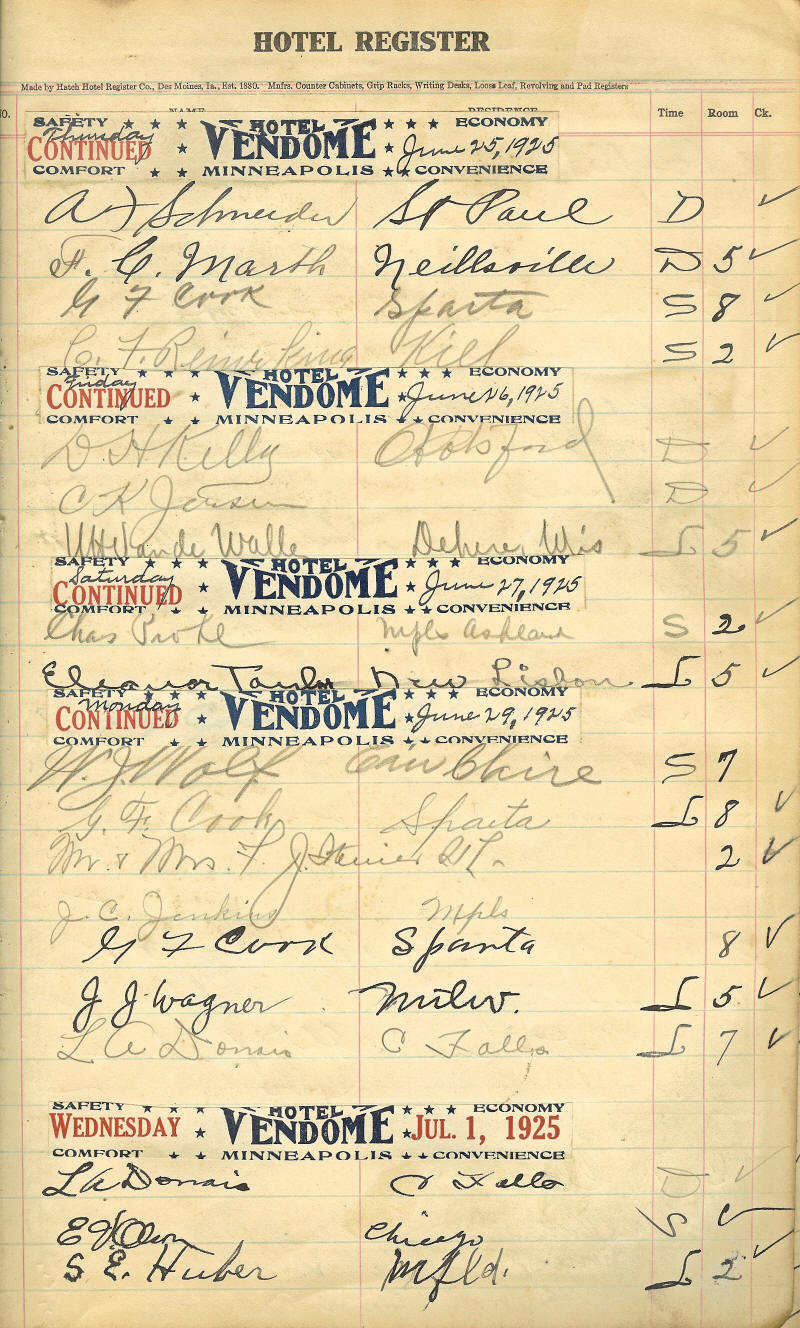 HOTEL REGISTER
Made by Hatch Hotel Register Co., Des Moines, Ia., Est. 1880. Mnfrs. Counter Cabinets, Grip Racks, Writing Desks, Loose Leaf, Revolving and Pad Registers
NAME RESIDENCE Time Room Ck.
SAFETY HOTEL ECONOMY
Thursday
CONTINUED VENDOME June 25, 1925
COMFORT MINNEAPOLIS CONVENIENCE
A J Schneider St Paul D ✓
F. C. Marth Neillsville D 5 ✓
G F Cook Sparta S 8 ✓
C. F. S 2 ✓
SAFETY HOTEL ECONOMY
Friday
CONTINUED VENDOME June 26, 1925
COMFORT MINNEAPOLIS CONVENIENCE
D H Kelly D ✓
C K Jensen D ✓
Vande Walle Depere, Wis L 5 ✓
SAFETY HOTEL ECONOMY
Saturday
CONTINUED VENDOME June 27, 1925
COMFORT MINNEAPOLIS CONVENIENCE
Chas Mpls Ashland S 2 ✓
Eleanor Taylor New Lisbon L 5 ✓
SAFETY HOTEL ECONOMY
Monday
CONTINUED VENDOME June 29, 1925
COMFORT MINNEAPOLIS CONVENIENCE
W. J. Wolf Eau Claire S 7
G. F. Cook Sparta L 8 ✓
Mr. & Mrs. F. J. 2 ✓
J. C. Jenkins Mpls
G F Cook Sparta 8 ✓
J J Wagner Milw. L 5 ✓
L A Donais C Falls L 7 ✓
SAFETY HOTEL ECONOMY
WEDNESDAY VENDOME JUL. 1, 1925
COMFORT MINNEAPOLIS CONVENIENCE
L A Donais C Falls D ✓
E J Olson Chicago S ✓
S E. Huber Mfld. L 2 ✓